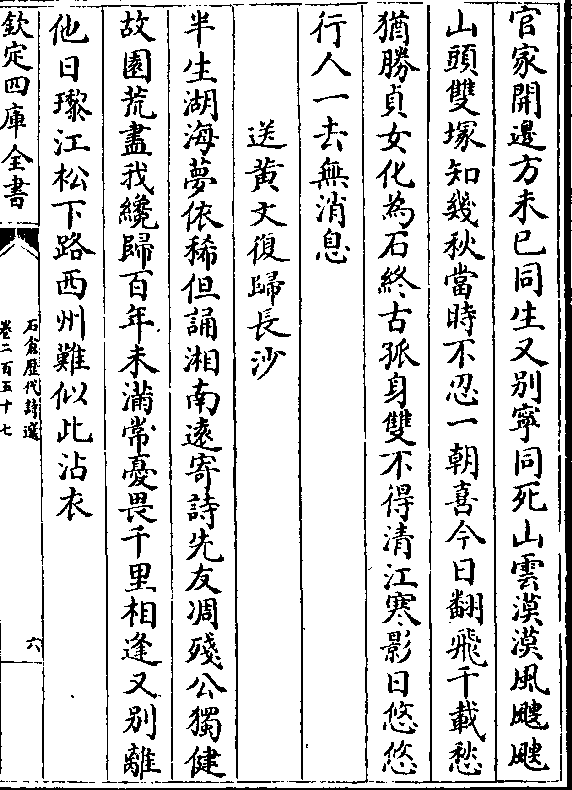 官家開邊方未已同生又别寧同死山雲漠漠風颼颼
山頭雙塚知幾秋當時不忍一朝喜今日翻飛千載愁
猶勝貞女化為石終古孤身雙不得清江寒影日悠悠
行人一去無消息
送黄文復歸長沙
半生湖海夢依稀但誦湘南逺寄詩先友凋殘公獨健
故園荒盡我纔歸百年未滿常憂畏千里相逢又别離
他日瓈江松下路西州難似此沾衣
欽定四庫全書
石倉歷代詩選
卷二百五十七
六